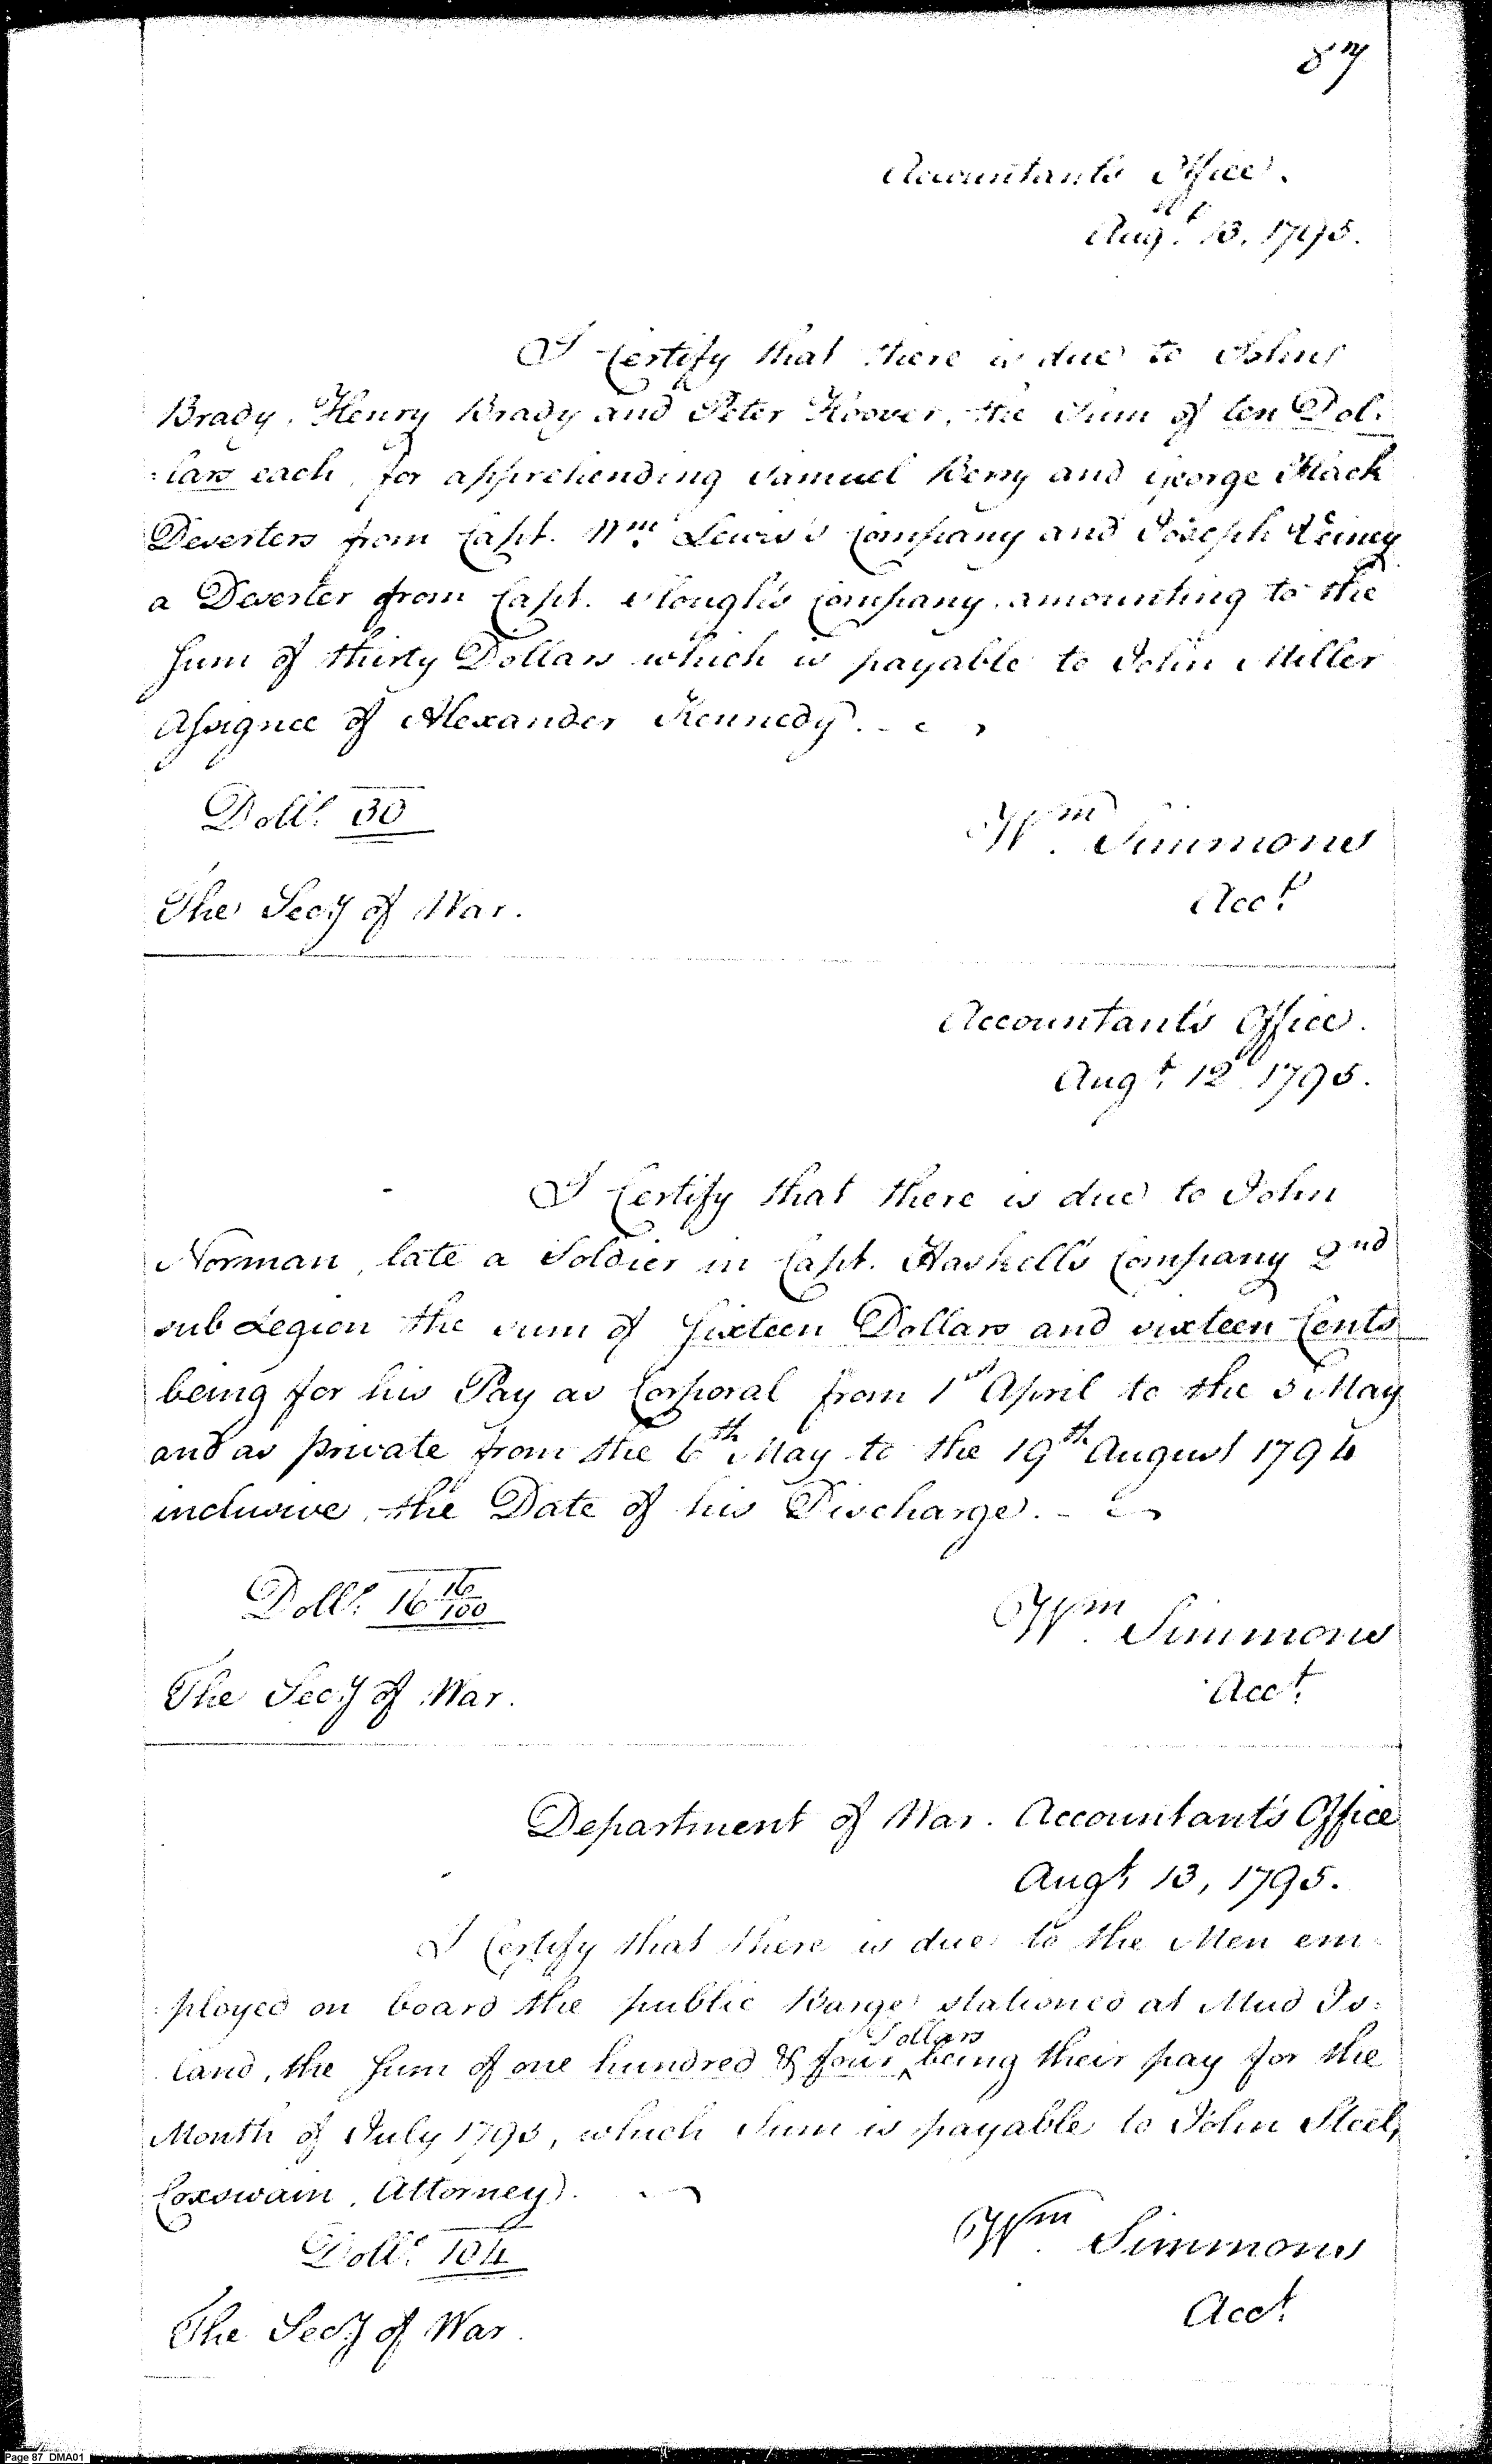 87
Accountants Office.
Augt. 13, 1795.
I Certify that there is due to John
Brady, Henry Brady and Peter Hoover, the Sum of ten Dol:
:lars each, for apprehending Samuel Berry and George Flack
Deserters from Capt. Wm. Lewis's Company and Joseph
a Deserter from Capt. Slough's Company. amounting to the
Sum of thirty Dollars which is payable to John Miller
Assignee of Alexander Kennedy.
Dolls. 30
Wm. Simmons
Acct.
The Secy of War.
Accountant's Office.
Augt. 12 1795.
I Certify that there is due to John
Norman, late a Soldier in Capt. Haskell's Company 2nd
sub Legion the sum of Sixteen Dollars and sixteen Cents
being for his Pay as Corporal from 1st April to the 5 May
and as private from the 6th May to the 19th August 1794
inclusive, the Date of his Discharge.
Dolls. 16 16/100
Wm. Simmons
Acct.
The Secy of War.
Department of War. Accountant's Office
Augt. 13, 1795.
I Certify that there is due to the Men em
:ployed on board the public Barge stationed at Mud Is:
land, the Sum of one hundred & four Dollars being their pay for the
Month of July 1795, which Sum is payable to John Steel,
Coxswain, Attorney.
Dolls. 104
Wm. Simmons
Acct.
The Secy of War.
Page 87 DMA01